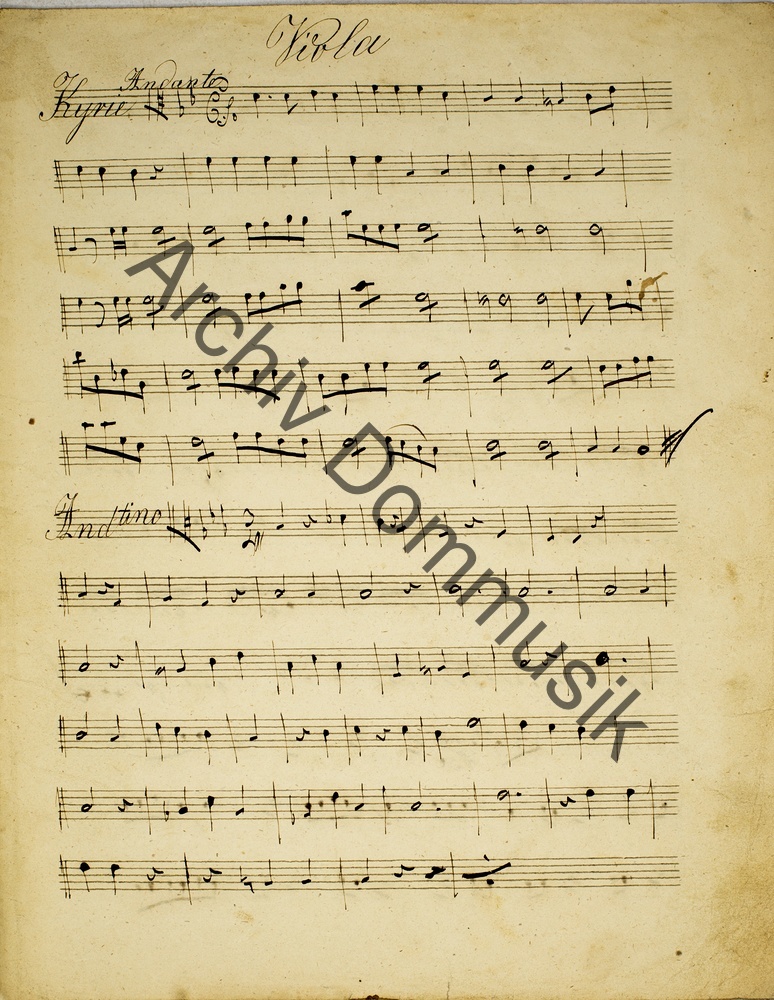 Viola
Andante
Kyrie
Andtino
Archiv Dommusik